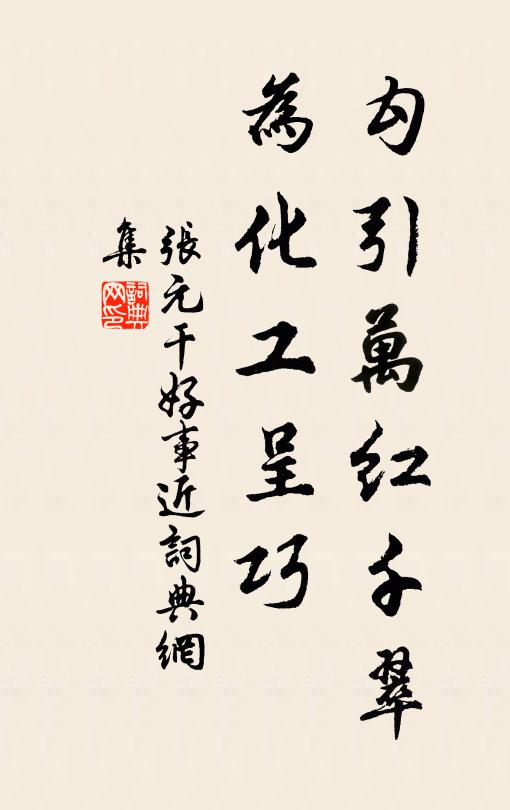 勾引萬紅千翠
為化工呈巧
張元干好事近詞典網
集
詞典
网印